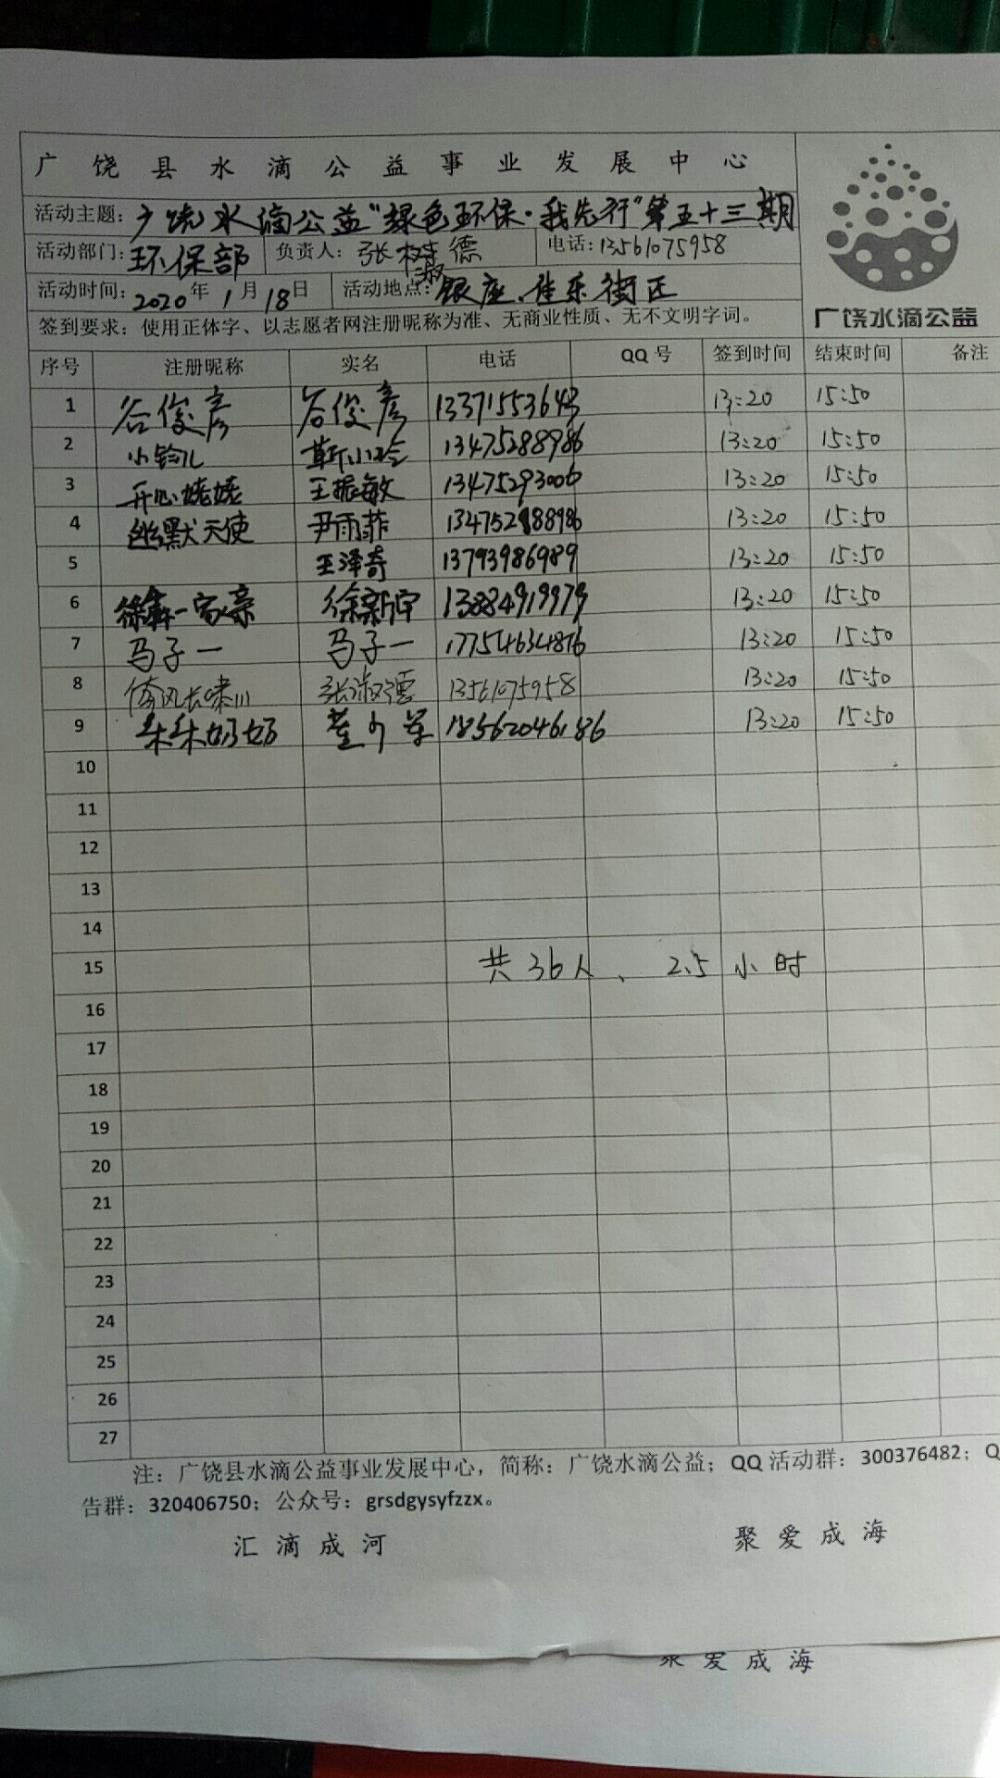 广饶县水滴公益事业发展中心
活动主题：广饶水滴公益"绿色环保·我先行"第五十三期
活动部门：环保部 负责人：张淑德 电话：13561075958
活动时间：2020年1月18日 活动地点：银座、佳乐街区
广饶水滴公益
签到要求：使用正体字、以志愿者网注册昵称为准、无商业性质、无不文明字词。
序号 注册昵称 实名 电话 QQ号 签到时间 结束时间 备注
1 谷俊彦 谷俊彦 13371553643 13:20 15:50
2 小铃儿 靳小玲 13475288986 13:20 15:50
3 开心姥姥 王振敏 13475293006 13:20 15:50
4 幽默天使 尹雨菲 13475288986 13:20 15:50
5 王泽奇 13793986989 13:20 15:50
6 一家亲 徐新宇 13884919979 13:20 15:50
7 马子一 马子一 17754634876 13:20 15:50
8 倚风长啸川 张淑德 13561075958 13:20 15:50
9 朵朵奶奶 18562046186 13:20 15:50
10
11
12
13
14
15 共36人、2.5小时
16
17
18
19
20
21
22
23
24
25
26
27
注：广饶县水滴公益事业发展中心，简称：广饶水滴公益；QQ活动群：300376482；Q
告群：320406750；公众号：grsdgysyfzzx。
汇滴成河 聚爱成海
聚爱成海